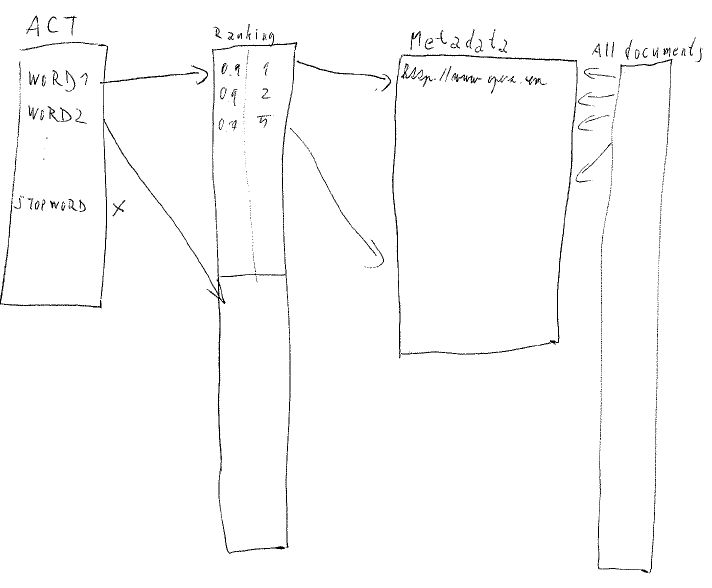 ACT
WORD1
WORD2
STOPWORD X
Ranking
0.9 1
0.9 2
0.7 5
Metadata
All documents